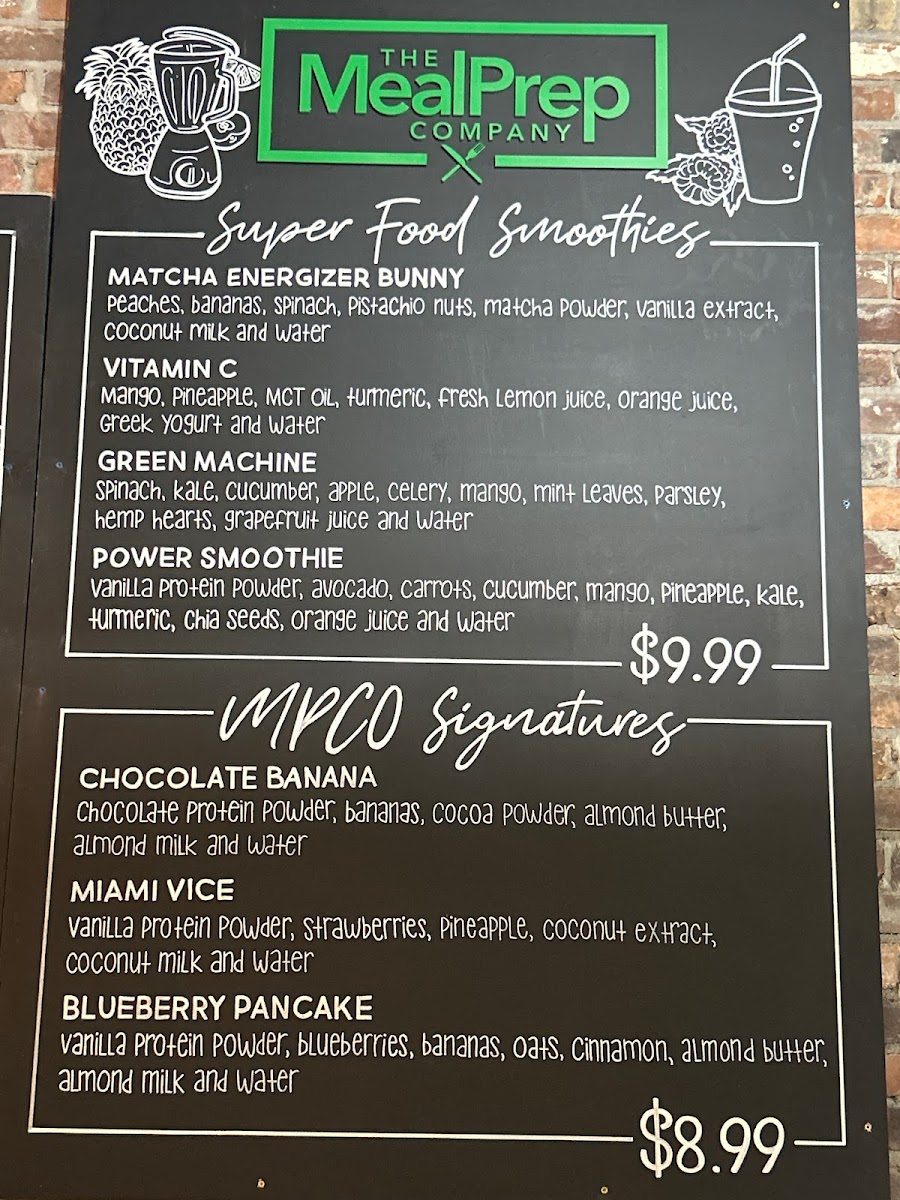 THE
MealPrep
COMPANY
Super Food Smoothies
MATCHA ENERGIZER BUNNY
Peaches, bananas, spinach, pistachio nuts, matcha powder, vanilla extract,
coconut milk and water
VITAMIN C
Mango, pineapple, MCT oil, turmeric, fresh lemon juice, orange juice,
Greek yogurt and water
GREEN MACHINE
Spinach, kale, cucumber, apple, celery, mango, mint leaves, parsley,
hemp hearts, grapefruit juice and water
POWER SMOOTHIE
Vanilla protein powder, avocado, carrots, cucumber, mango, pineapple, kale,
turmeric, chia seeds, orange juice and water
$9.99
MPCO Signatures
CHOCOLATE BANANA
Chocolate protein powder, bananas, cocoa powder, almond butter,
almond milk and water
MIAMI VICE
Vanilla protein powder, strawberries, pineapple, coconut extract,
coconut milk and water
BLUEBERRY PANCAKE
Vanilla protein powder, blueberries, bananas, oats, cinnamon, almond butter,
almond milk and water
$8.99